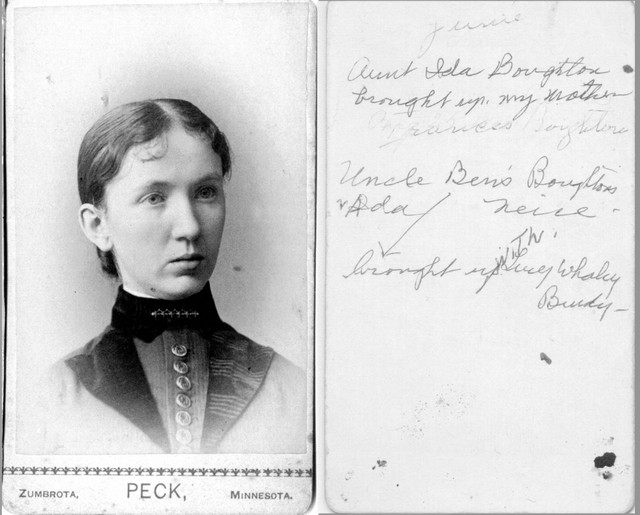 ZUMBROTA, PECK, MINNESOTA.
Jennie
Aunt Ida Boughton
brought up my mother
Frances Boughton
Uncle Ben's Boughtons
& Ada neice -
WITH
brought up Lucy Whaley
Bundy -